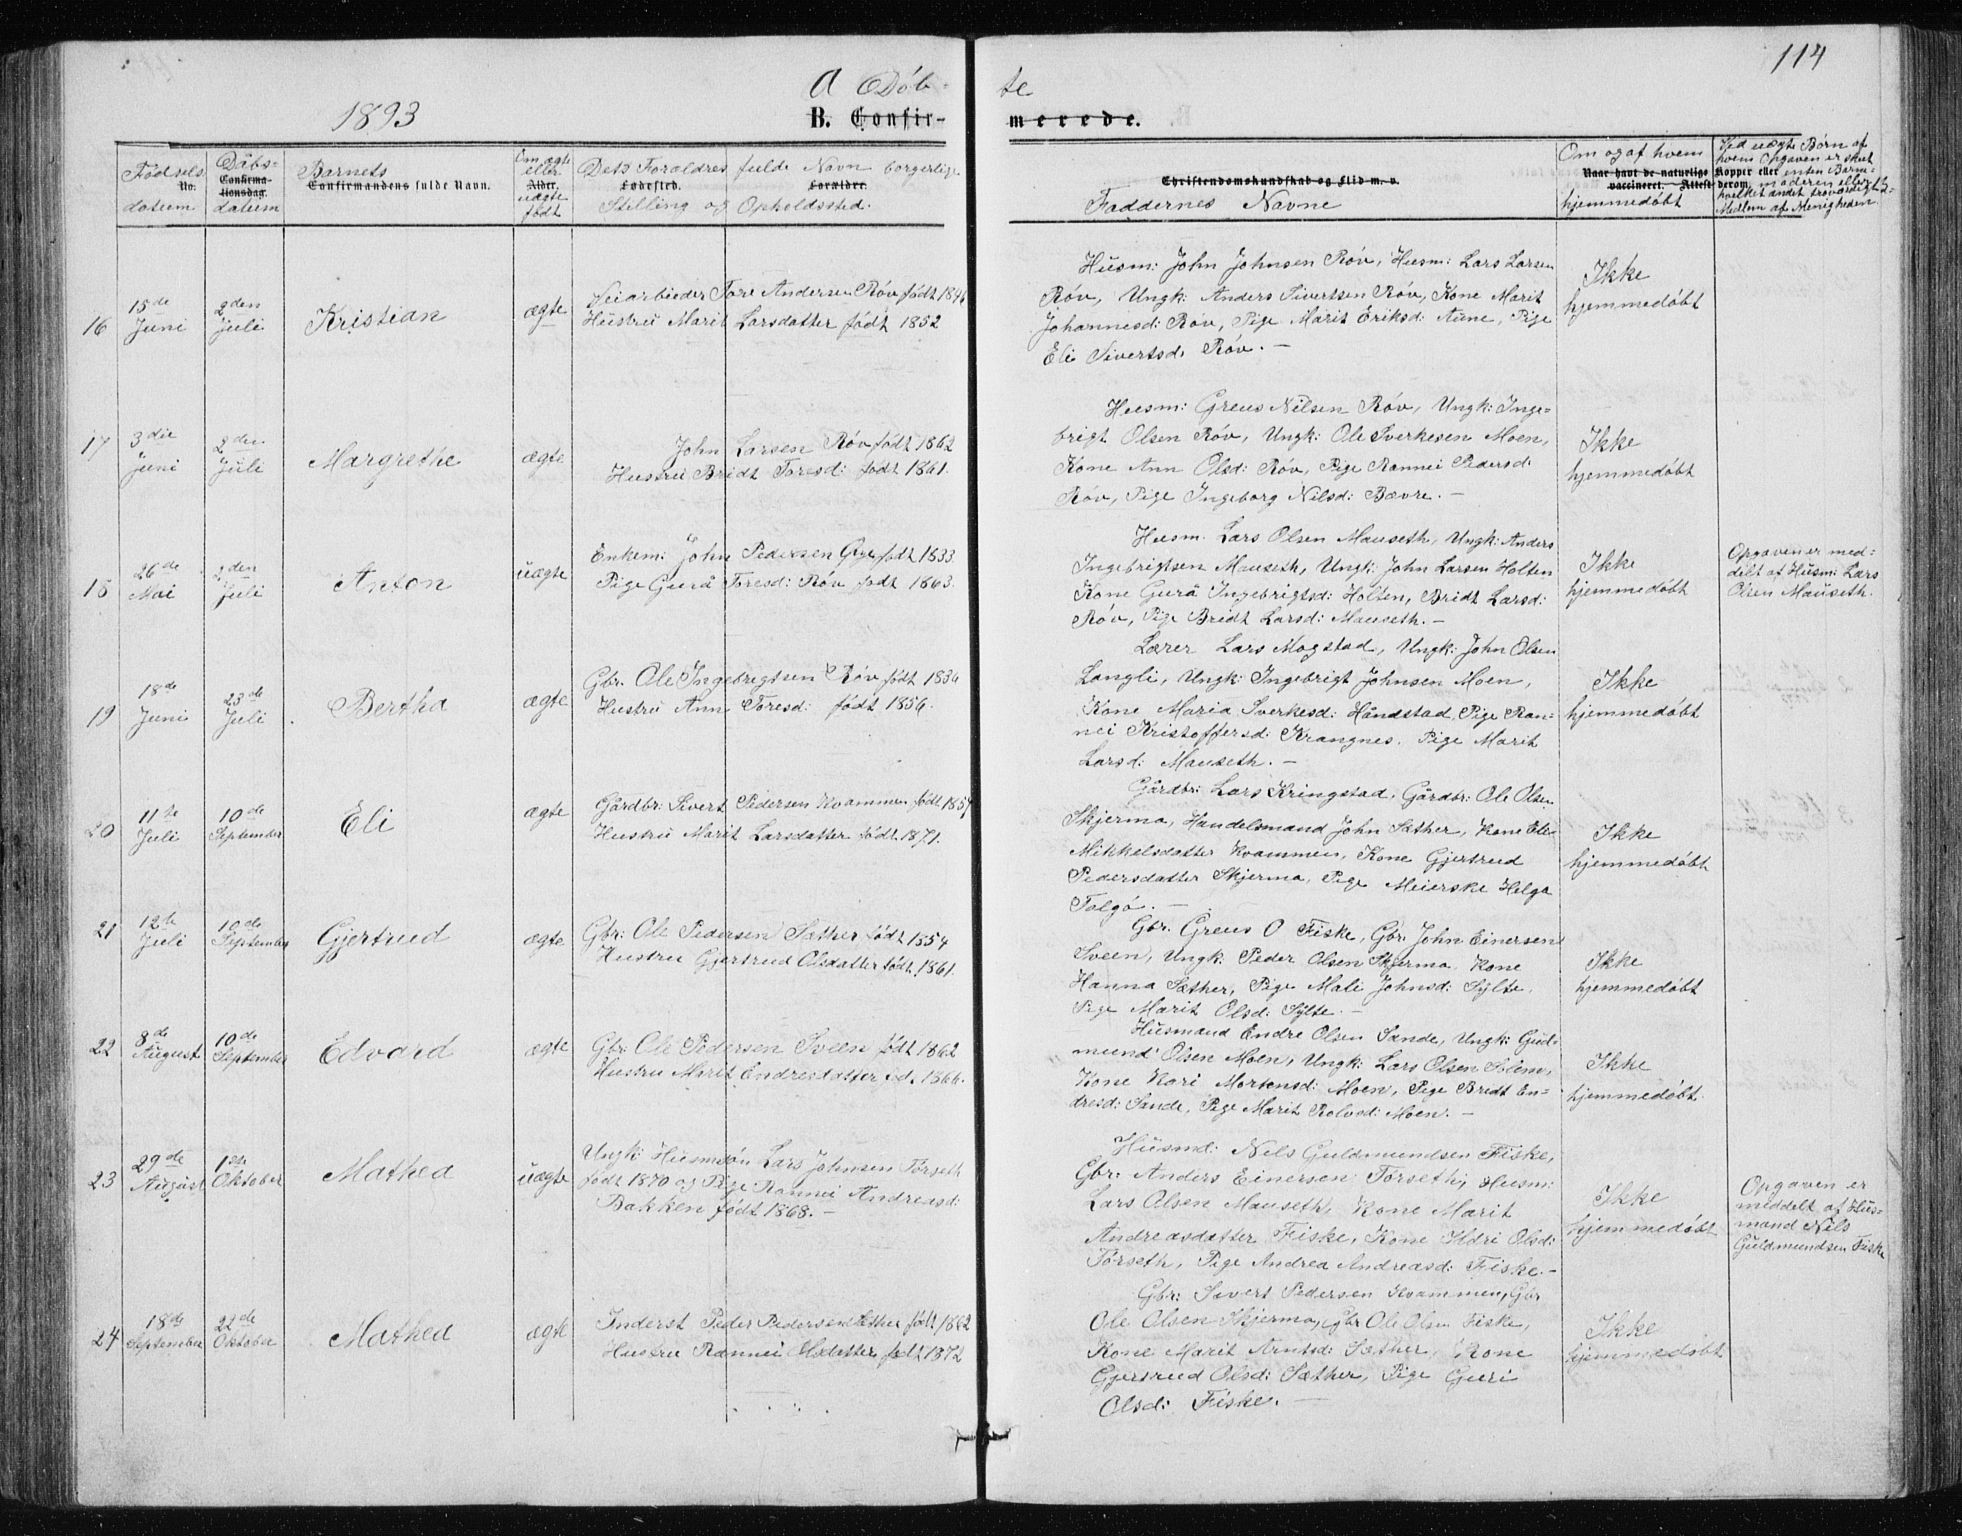 114
1893
A Döb-
te
B. Confir-
merede.
Fødsels
No.
datum
Döbs-
Confirma-
tionsdag.
datum
Barnets
Confirmandens fulde Navn.
Om ægte
eller
Alder.
uægte
født
Dets Forældres fulde Navn borgerlige
Fødested. Forældre.
Stilling og Opholdssted.
Christendomskundskab og Flid m. v.
Faddernes Navne
Om og af hvem
Naar havt de naturlige
vaccineret. Attest
hjemmedöbt
Ved uægte Börn af
hvem Opgaven er skeet
Kopper eller enten Barne-
derom, moderen eller
hvilket andet troværdigt
Medlem af Menigheden.
16
15de
Juni
2den
Juli
Kristian
ægte
Veiarbieder Tore Andersen Röv født 1846
Hustru Marit Larsdatter født 1852
Husm: John Johnsen Röv, Husm: Lars Larsen
Röv, Ungk: Anders Sivertsen Röv, Kone Marit
Johannesd: Röv, Pige Marit Eriksd: Aune, Pige
Eli Sivertsd: Röv. —
Ikke
hjemmedöbt
17
3die
Juni
2den
Juli
Margrethe
ægte
John Larsen Röv født 1862
Hustru Bridt Toresd: født 1861.
Husm: Greus Nilsen Röv, Ungk: Inge-
brigt Olsen Röv, Ungk: Ole Sverkesen Moen,
Kone Ann Olsd: Röv, Pige Rannei Pedersd:
Röv, Pige Ingeborg Nilsd: Bævre. —
Ikke
hjemmedöbt
18
26de
Mai
2den
Juli
Anton
uægte
Enkem: John Pedersen født 1833
Pige Gurå Toresd: Röv født 1863.
Husm. Lars Olsen Mauseth, Ungk: Anders
Ingebrigtsen Mauseth, Ungk: John Larsen Holten
Kone Gurå Ingebrigtsd: Holten, Bridt Larsd:
Röv, Pige Bridt Larsd: Mauseth. —
Ikke
hjemmedöbt
Opgaven er med-
delt af Husm: Lars
Olsen Mauseth.
19
18de
Juni
23de
Juli
Bertha
ægte
Gbr. Ole Ingebrigtsen Röv født
Hustru Ann Toresd: født 1856.
Lærer Lars Mogstad, Ungk: John Olsen
Langli, Ungk: Ingebrigt Johnsen Moen,
Kone Maria Sverkesd: Håndstad, Pige Ran-
nei Kristoffersd: Krangnes. Pige Marit
Larsd: Mauseth. —
Ikke
hjemmedöbt
20
11te
Juli
10de
September
Eli
ægte
Gårdbr: Sivert Pedersen Kvammen født 1857
Hustru Marit Larsdatter født 1871.
Gårdbr: Lars Kringstad, Gårdbr: Ole Olsen
Skjermo, Handelsmand John Sæther, Kone Eli
Mikkelsdatter Kvammen, Kone Gjertrud
Pedersdatter Skjermo, Pige Meierske Helga
Talgö. —
Ikke
hjemmedöbt
21
12te
Juli
10de
September
Gjertrud
ægte
Gbr: Ole Pedersen Sæther født 1854
Hustru Gjertrud Olsdatter født 1861.
Gbr: Greus O Fiske, Gbr: John Einersen
Sveen, Ungk: Peder Olsen Skjermo, Kone
Hanna Sæther, Pige Mali Johnsd: Sylte.
Pige Marit Olsd: Sylte. —
Ikke
hjemmedöbt
22
8de
August
10de
September
Edvard
ægte
Gbr: Ole Pedersen Sveen født 1862
Hustru Marit Endresdatter 1866.
Husmand Endre Olsen Sande, Ungk: Gud-
mund Olsen Moen, Ungk: Lars Olsen Solem,
Kone Kari Mortensd: Moen, Pige Bridt En-
dresd: Sande, Pige Marit Rolvsd: Moen. —
Ikke
hjemmedöbt.
23
29de
August
1ste
Oktober
Mathea
uægte
Ungk: Husmsön Lars Johnsen Törseth
født 1870 og Pige Rannei Andreasd:
Bakken født 1868. —
Husmd: Nils Guldmundsen Fiske,
Gbr: Anders Einersen Törseth, Husm:
Lars Olsen Mauseth, Kone Marit
Andreasdatter Fiske, Kone Ildri Olsd:
Törseth, Pige Andrea Andreasd: Fiske. —
Ikke
hjemmedöbt
Opgaven er
meddelt af Hus-
mand Nils
Guldmundsen Fiske
24
18de
September
22de
Oktober
Mathea
ægte
Inderst Peder Pedersen Sæther født 1862
Hustru Rannei Olsdatter født 1872
Gbr: Sivert Pedersen Kvammen, Gbr
Ole Olsen Skjermo, Gbr Ole Olsen Fiske,
Kone Marit Arntsd: Sæther, Kone
Gjertrud Olsd: Sæther, Pige Guri
Olsd: Fiske. —
Ikke
hjemmedöbt